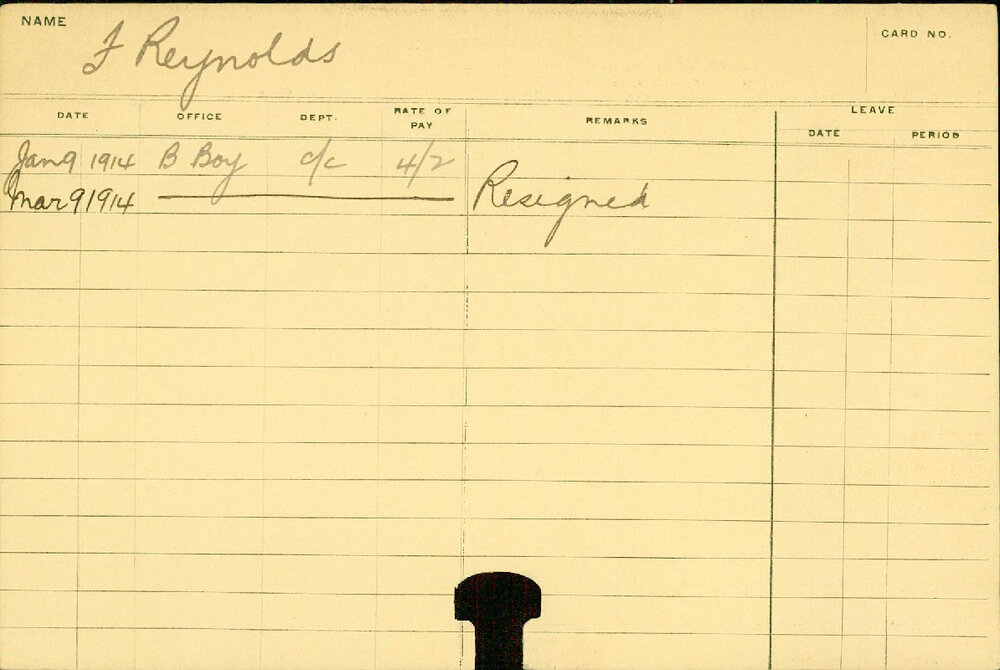 NAME
F Reynolds
CARD NO.
DATE OFFICE DEPT. RATE OF PAY REMARKS LEAVE
DATE PERIOD
Jan 9 1914 B Boy c/c 4/2
Mar 9 1914 Resigned